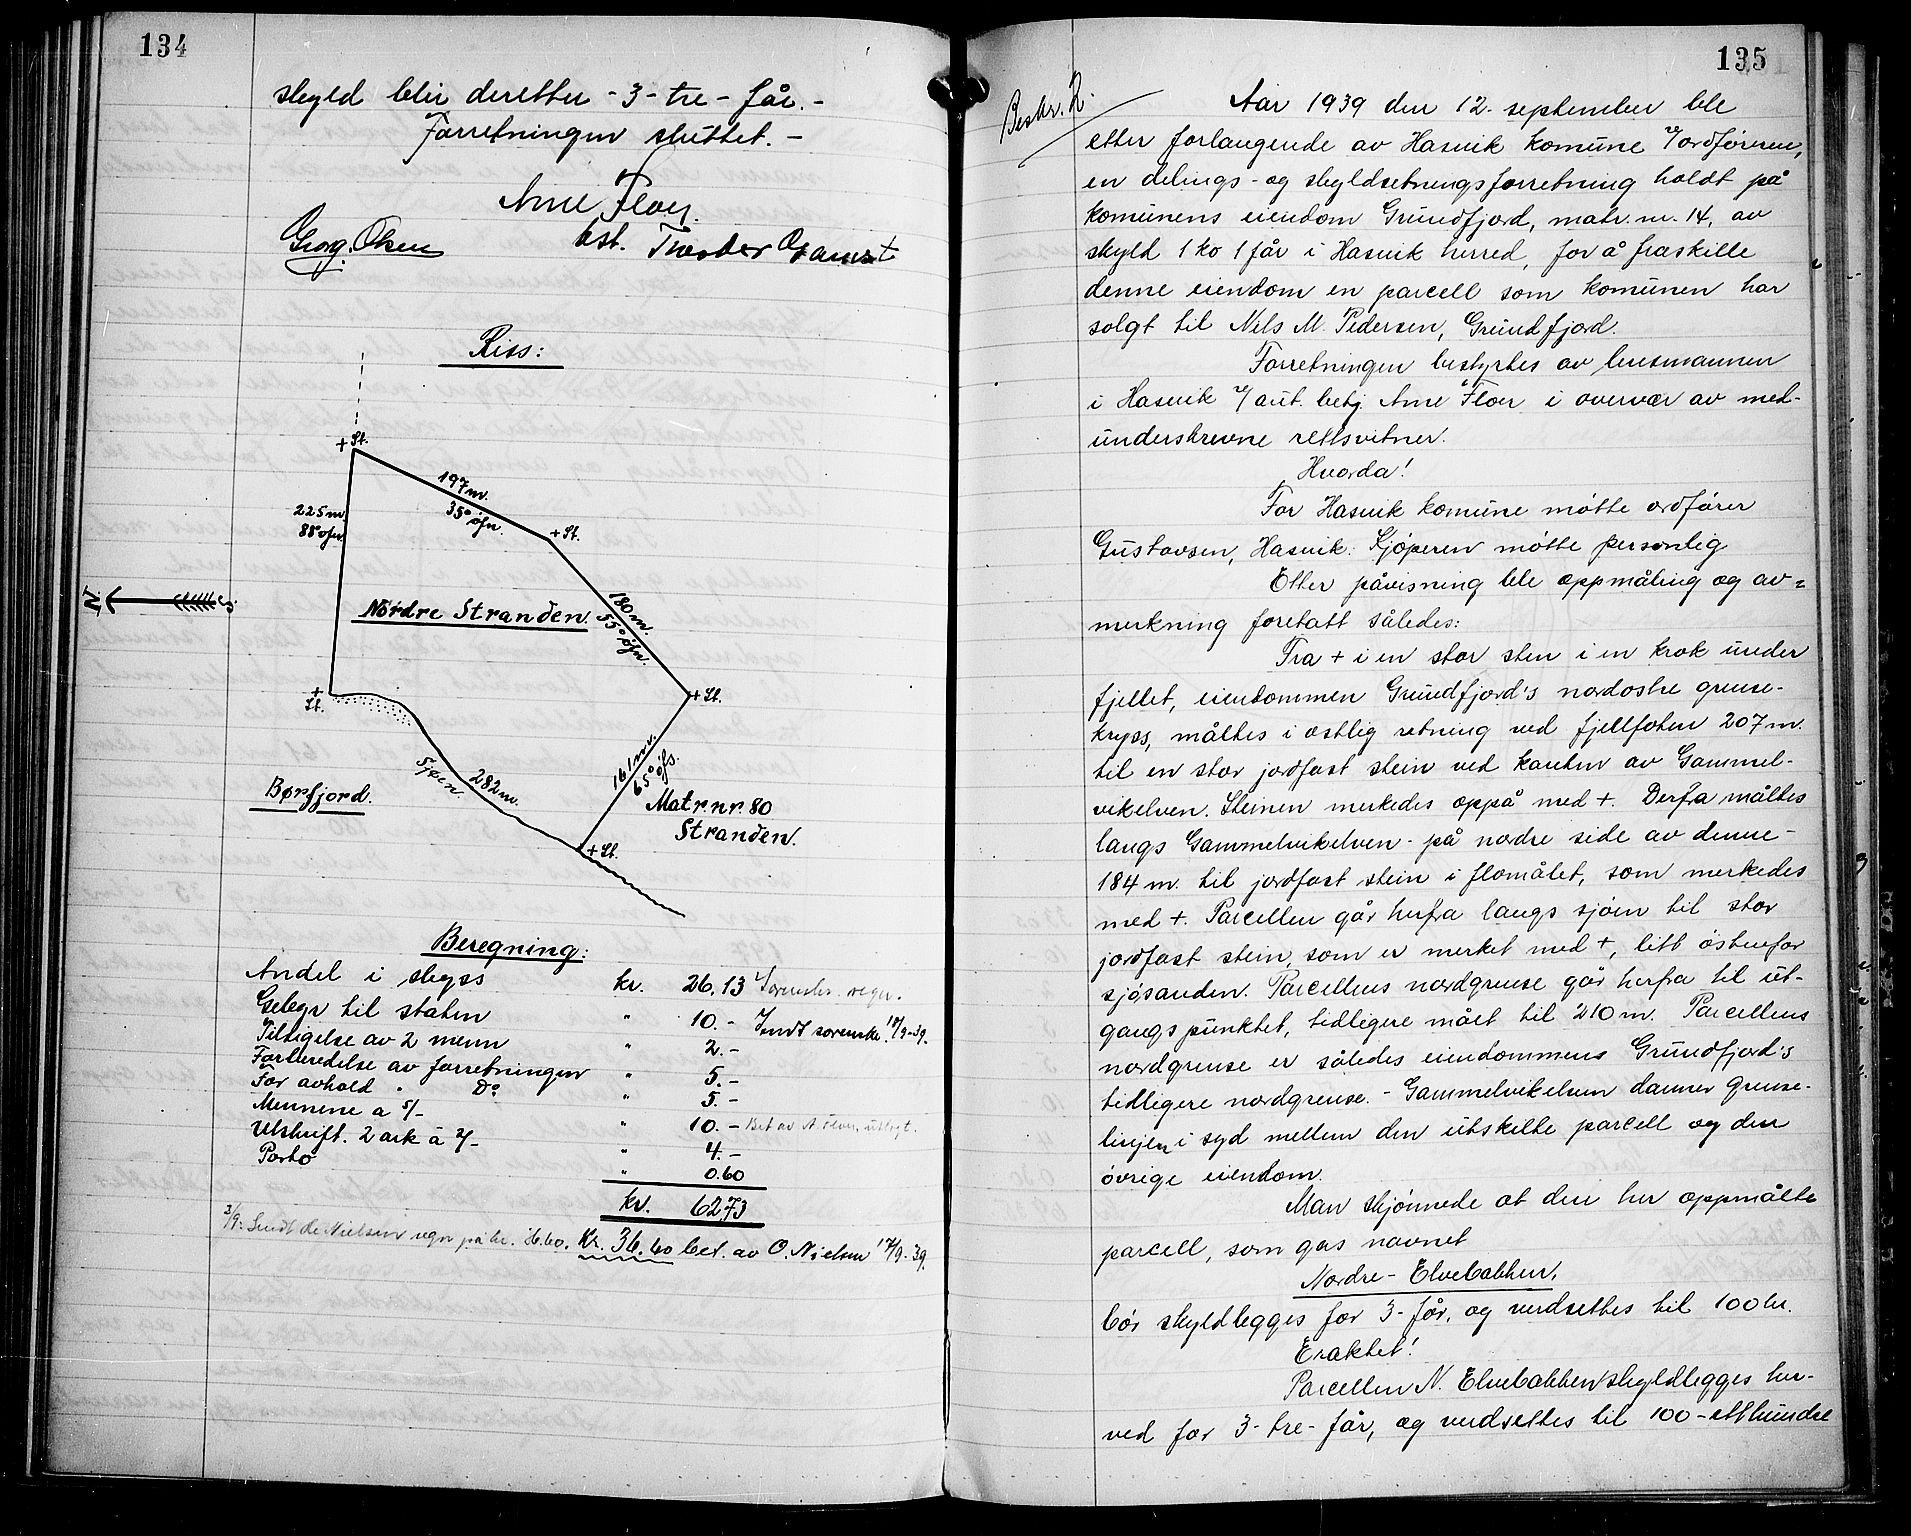 134
skyld blir deretter - 3 - tre - får. -
Forretningen sluttet. -
Arne Floer.
bst.
Georg. Olsen
Riss:
+ St.
197 m.
35° øfn.
+ St.
225 m.
88° øfn.
N. S.
Nordre Stranden.
180 m.
55° øfn.
+ St.
+
St.
Sjøen.
282 m.
161 m.
65° øfs.
Børfjord.
Matr nr. 80
Stranden.
+ St.
Beregning:
Andel i skyss kr. 26.13 Sorenskr. regn.
Gebyr til staten " 10.- Sendt sorenskr. 12/9-39.
Tiltigelse av 2 menn " 2.-
Forberedelse av forretningen " 5.-
For avhold " Do " 5.-
Mennene a 5/- " 10.- Bet av A Floer, utlagt.
Utskrift. 2 ark à 2/- " 4.-
Porto " 0.60
kr. 62.73
3/9. Sendt O. Nielsen regn på kr. 36.60. Kr. 36.60 bet. av O. Nielsen 12/9-39.
135
Beskr. R.
Aar 1939 den 12. september ble
etter forlangende av Hasvik komune v/ordføreren,
en delings- og skyldsetningsforretning holdt på
komunens eiendom Grundfjord, matr. nr. 14, av
skyld 1 ko 1 får i Hasvik herred, for å fraskille
denne eiendom en parcell som komunen har
solgt til Nils M. Pedersen, Grundfjord.
Forretningen bestyrtes av lensmannen
i Hasvik v/ aut. betj. Arne Floer i overvær av med-
underskrevne rettsvitner.
Hvorda!
For Hasvik komune møtte ordfører
Gustavsen, Hasvik. Kjøperen møtte personlig
Etter påvisning ble oppmåling og av=
merkning foretatt således:
Fra + i en stor sten i en krok under
fjellet, eiendommen Grundfjord's nordostre grense-
kryss, måltes i østlig retning ved fjellfoten 207 m.
til en stor jordfast stein ved kanten av Gammel-
vikelven. Steinen merkedes oppå med +. Derfra måltes
langs Gammelvikelven - på nordre side av denne -
184 m. til jordfast stein i flomålet, som merkedes
med +. Parcellen går herfra langs sjøen til stor
jordfast stein, som er merket med +, litt østenfor
sjøsanden. Parcellens nordgrense går herfra til ut-
gangspunktet, tidligere målt til 210 m. Parcellens
nordgrense er således eiendommens Grundfjord's
tidligere nordgrense. - Gammelvikelven danner grense-
linjen i syd mellem den utskilte parcell og den
øvrige eiendom.
Man skjønnede at den her oppmålte
parcell, som gas navnet
Nordre - Elvebakken,
bør skyldlegges for 3 - får, og verdsettes til 100 kr.
Eraktet!
Parcellen N. Elvebakken skyldlegges her-
ved for 3 - tre - får, og verdsettes til 100 - etthundre